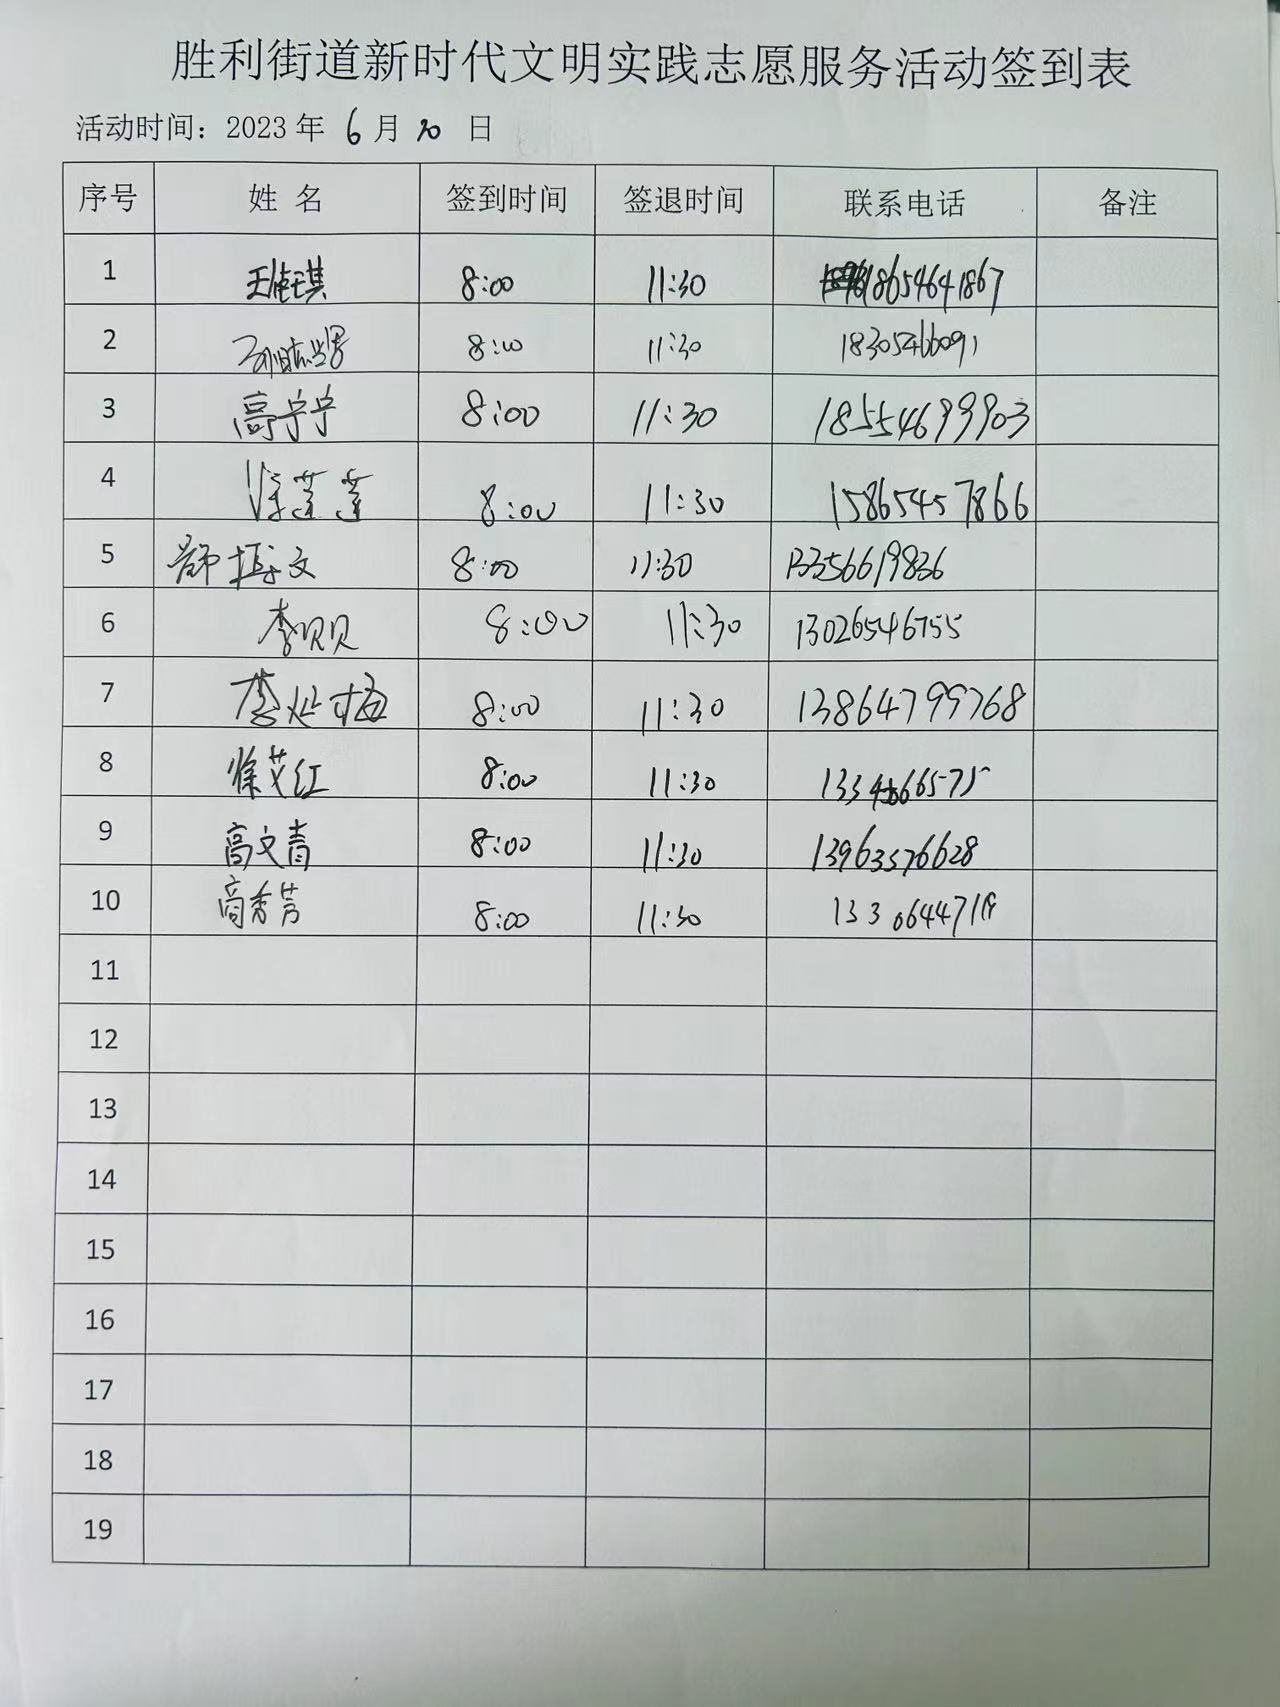 胜利街道新时代文明实践志愿服务活动签到表
活动时间：2023 年 6 月 20 日
序号 姓 名 签到时间 签退时间 联系电话 备注
1 8:00 11:30 18654641867
2 8:00 11:30 18305466091
3 高宁宁 8:00 11:30 18554699903
4 徐莲莲 8:00 11:30 15865457866
5 8:00 11:30 13356619836
6 李贝贝 8:00 11:30 13026546755
7 李延梅 8:00 11:30 13864799768
8 徐艾红 8:00 11:30
9 高文青 8:00 11:30 13963576628
10 高秀芳 8:00 11:30
11
12
13
14
15
16
17
18
19